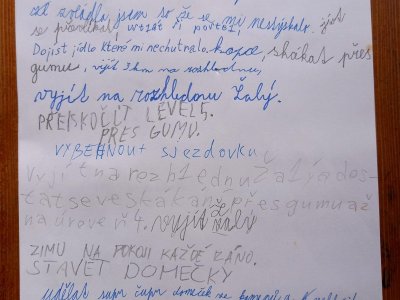 zvládla jsem to že se mi nestýskalo.
se překonat, uklízet si
Dojíst jídlo které mi nechutnalo. kopce, skákat přes
gumu, vyjít 3km na rozhlednu,
vyjít na rozhlednu Žalý.
PŘESKOČIT LEVEL 5.
PŘES GUMU.
VYBĚHNOUT sjezdovku
Vyjít na rozhlednu Žalý a dos-
tat se ve skákání přes gumu až
na úroveň 4. vyjít Žalý
ZIMU NA POKOJI KAŽDÉ RÁNO.
STAVĚT DOMEČKY
udělat supr čupr domeček